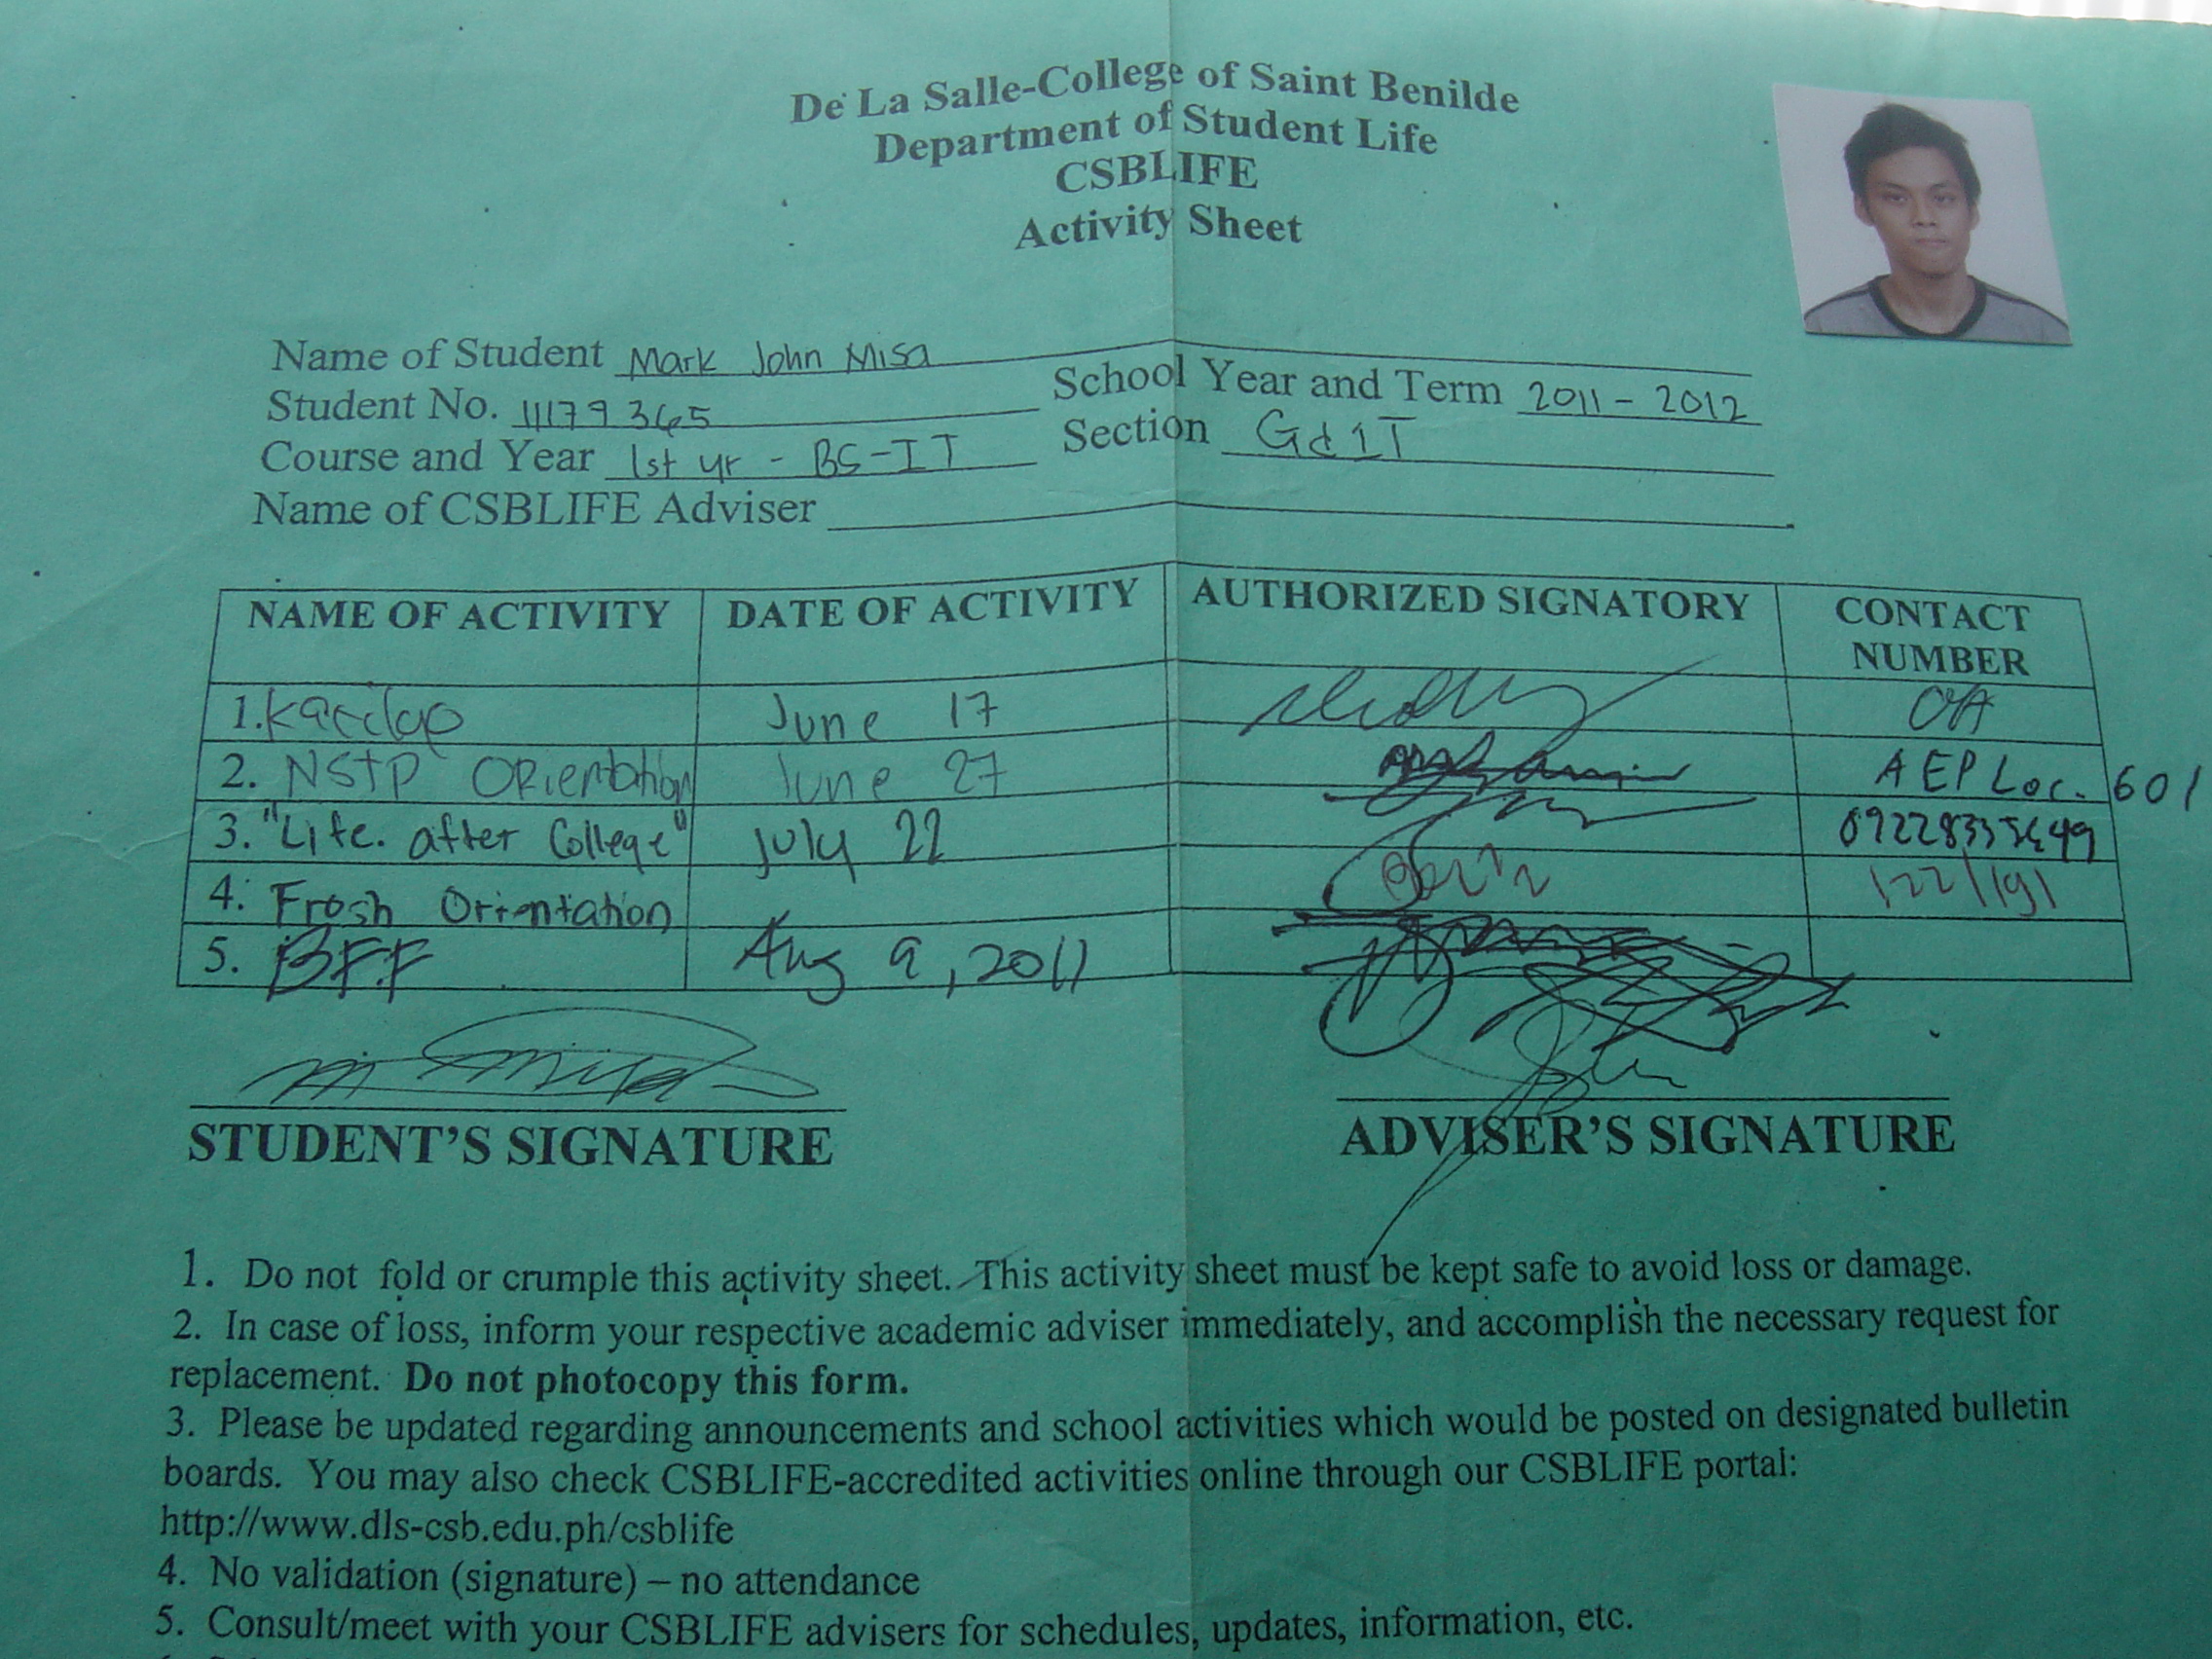 De La Salle-College of Saint Benilde
Department of Student Life
CSBLIFE
Activity Sheet
Name of Student Mark John Misa
Student No. 11179365
School Year and Term 2011-2012
Course and Year 1st yr - BS-IT
Section Gd1T
Name of CSBLIFE Adviser
NAME OF ACTIVITY DATE OF ACTIVITY AUTHORIZED SIGNATORY CONTACT NUMBER
1. June 17
2. NSTP Orientation June 27 AEP Loc. 601
3. "Life. after College" July 22
4. Frosh Orientation
5. BFF Aug 9, 2011
STUDENT'S SIGNATURE
ADVISER'S SIGNATURE
1. Do not fold or crumple this activity sheet. This activity sheet must be kept safe to avoid loss or damage.
2. In case of loss, inform your respective academic adviser immediately, and accomplish the necessary request for
replacement. Do not photocopy this form.
3. Please be updated regarding announcements and school activities which would be posted on designated bulletin
boards. You may also check CSBLIFE-accredited activities online through our CSBLIFE portal:
http://www.dls-csb.edu.ph/csblife
4. No validation (signature) – no attendance
5. Consult/meet with your CSBLIFE advisers for schedules, updates, information, etc.